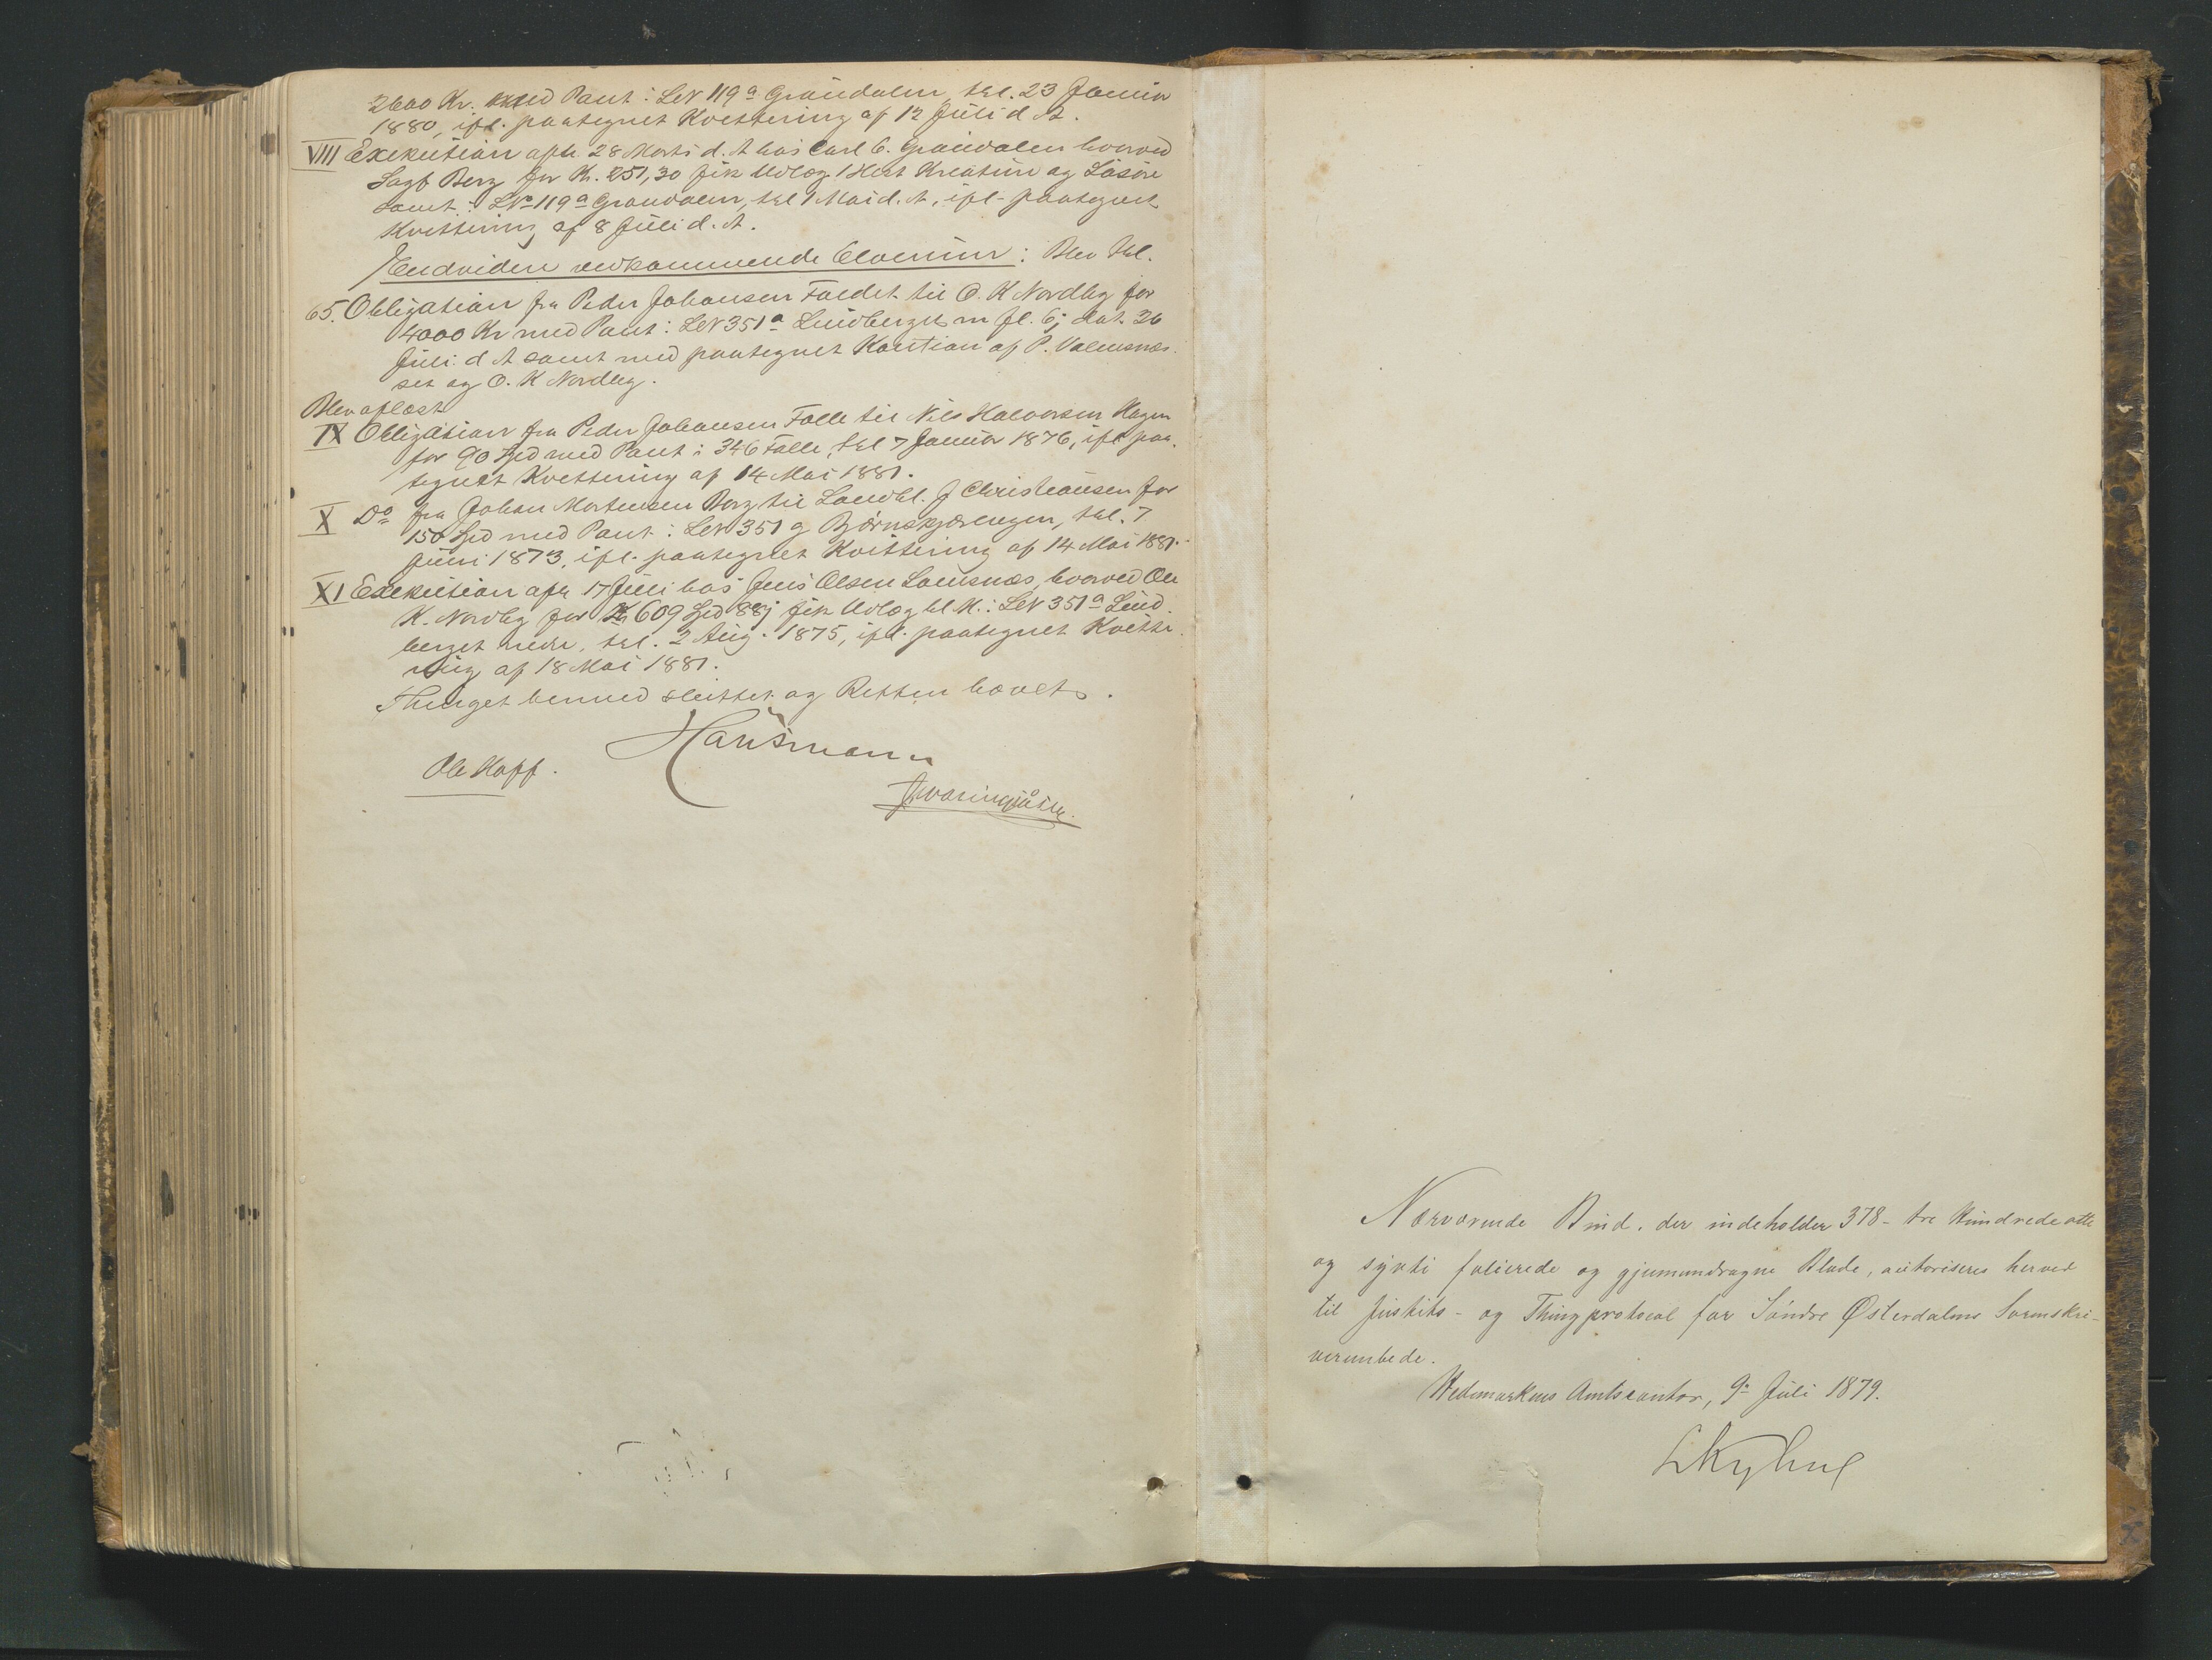 2600 Kr. med Pant i LN 119a Grandalen, thl. 23 Januar
1880, ifl. paategnet Kvittering af 12 Juli d. A.
VIII Exekution afh. 28 Marts d. A hos Carl C. Grandalen hvorved
Sagf Berg for Kr. 251,30 fik Udlæg i Kreature og Løsøre
samt i LNo 119a Grandalen, thl 1 Mai d. A, ifl. paategnet
Kvittering af 8 Juli d. A.
Endvidere vedkommende Elverum: Blev thl.
65. Obligation fra Peder Johansen Faldet til O. K Nordby for
4000 Kr med Pant i LN 351a Lindberget m fl. 6; dat. 26
Juli d A samt med paategnet Kaution af
set og O. K Nordby.
Blev aflæst
IX Obligation fra Peder Johansen Falle til Nils Halvorsen Hagen
for 90 Spd med Pant i 346 Falle, thl 7 Januar 1876, ifl paa-
tegnet Kvittering af 14 Mai 1881.
X Do fra Johan Mortensen Berg til Landhl. J Christiansen for
150 Spd med Pant i LN 351g Bjørnskjærengen, thl. 7
Juni 1873, ifl. paategnet Kvittering af 14 Mai 1881.
XI Exekution afh 17 Juli hos Jens Olsen hvorved Ole
K. Nordby for 609 Spd 88j fik Udlæg bl. A. i LN 351a Lind-
berget nedre, thl. 2 Aug. 1875, ifl. paategnet Kvitte-
ring af 18 Mai 1881.
Thinget hermed sluttet og Retten hævet.
Hansmann
Ole Hoff.
Nærværende Bind, der indeholder 378 - tre Hundrede otte
og sytti folierede og gjennemdragne Blade, autoriseres herved
til Justits- og Thingprotocol for Søndre Østerdalens Sorenskri-
verembede.
Hedemarkens Amtscontor, 9de Juli 1879.